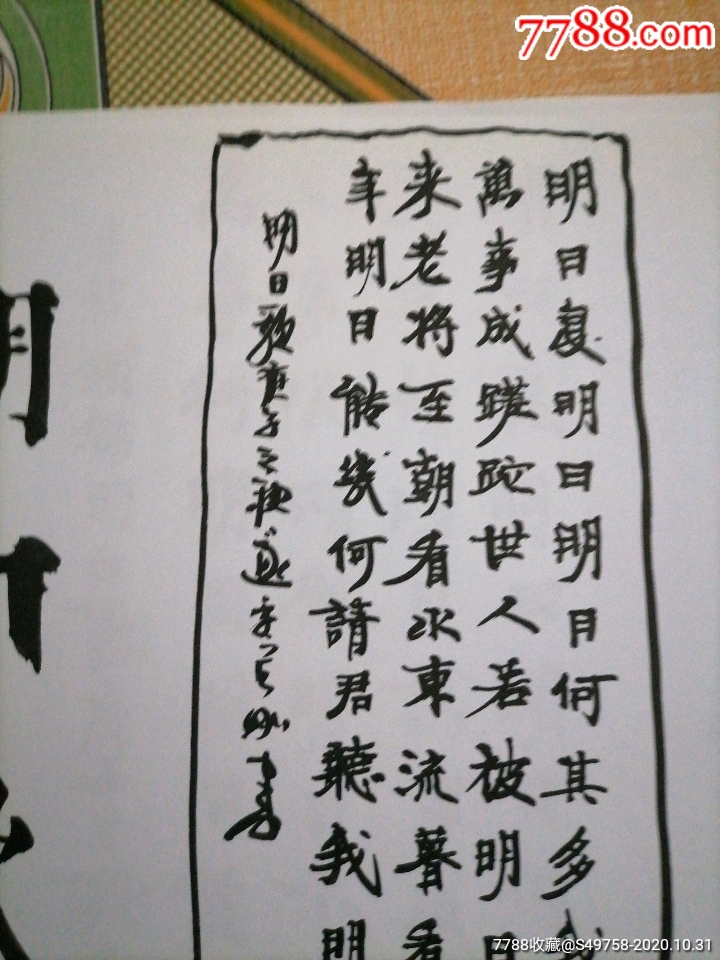 7788.com
明日复明日明日何其多
萬事成蹉跎世人若被明日
来老将至朝看水東流暮看
年明日能幾何請君聽我明
明日歌庚子之秋
7788收藏@S49758-2020.10.31